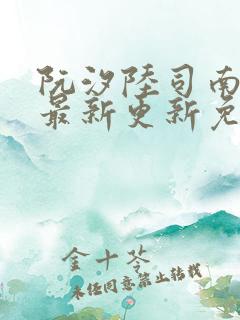 阮汐陸司南
最新更新免
金十苓
未经同意禁止转载